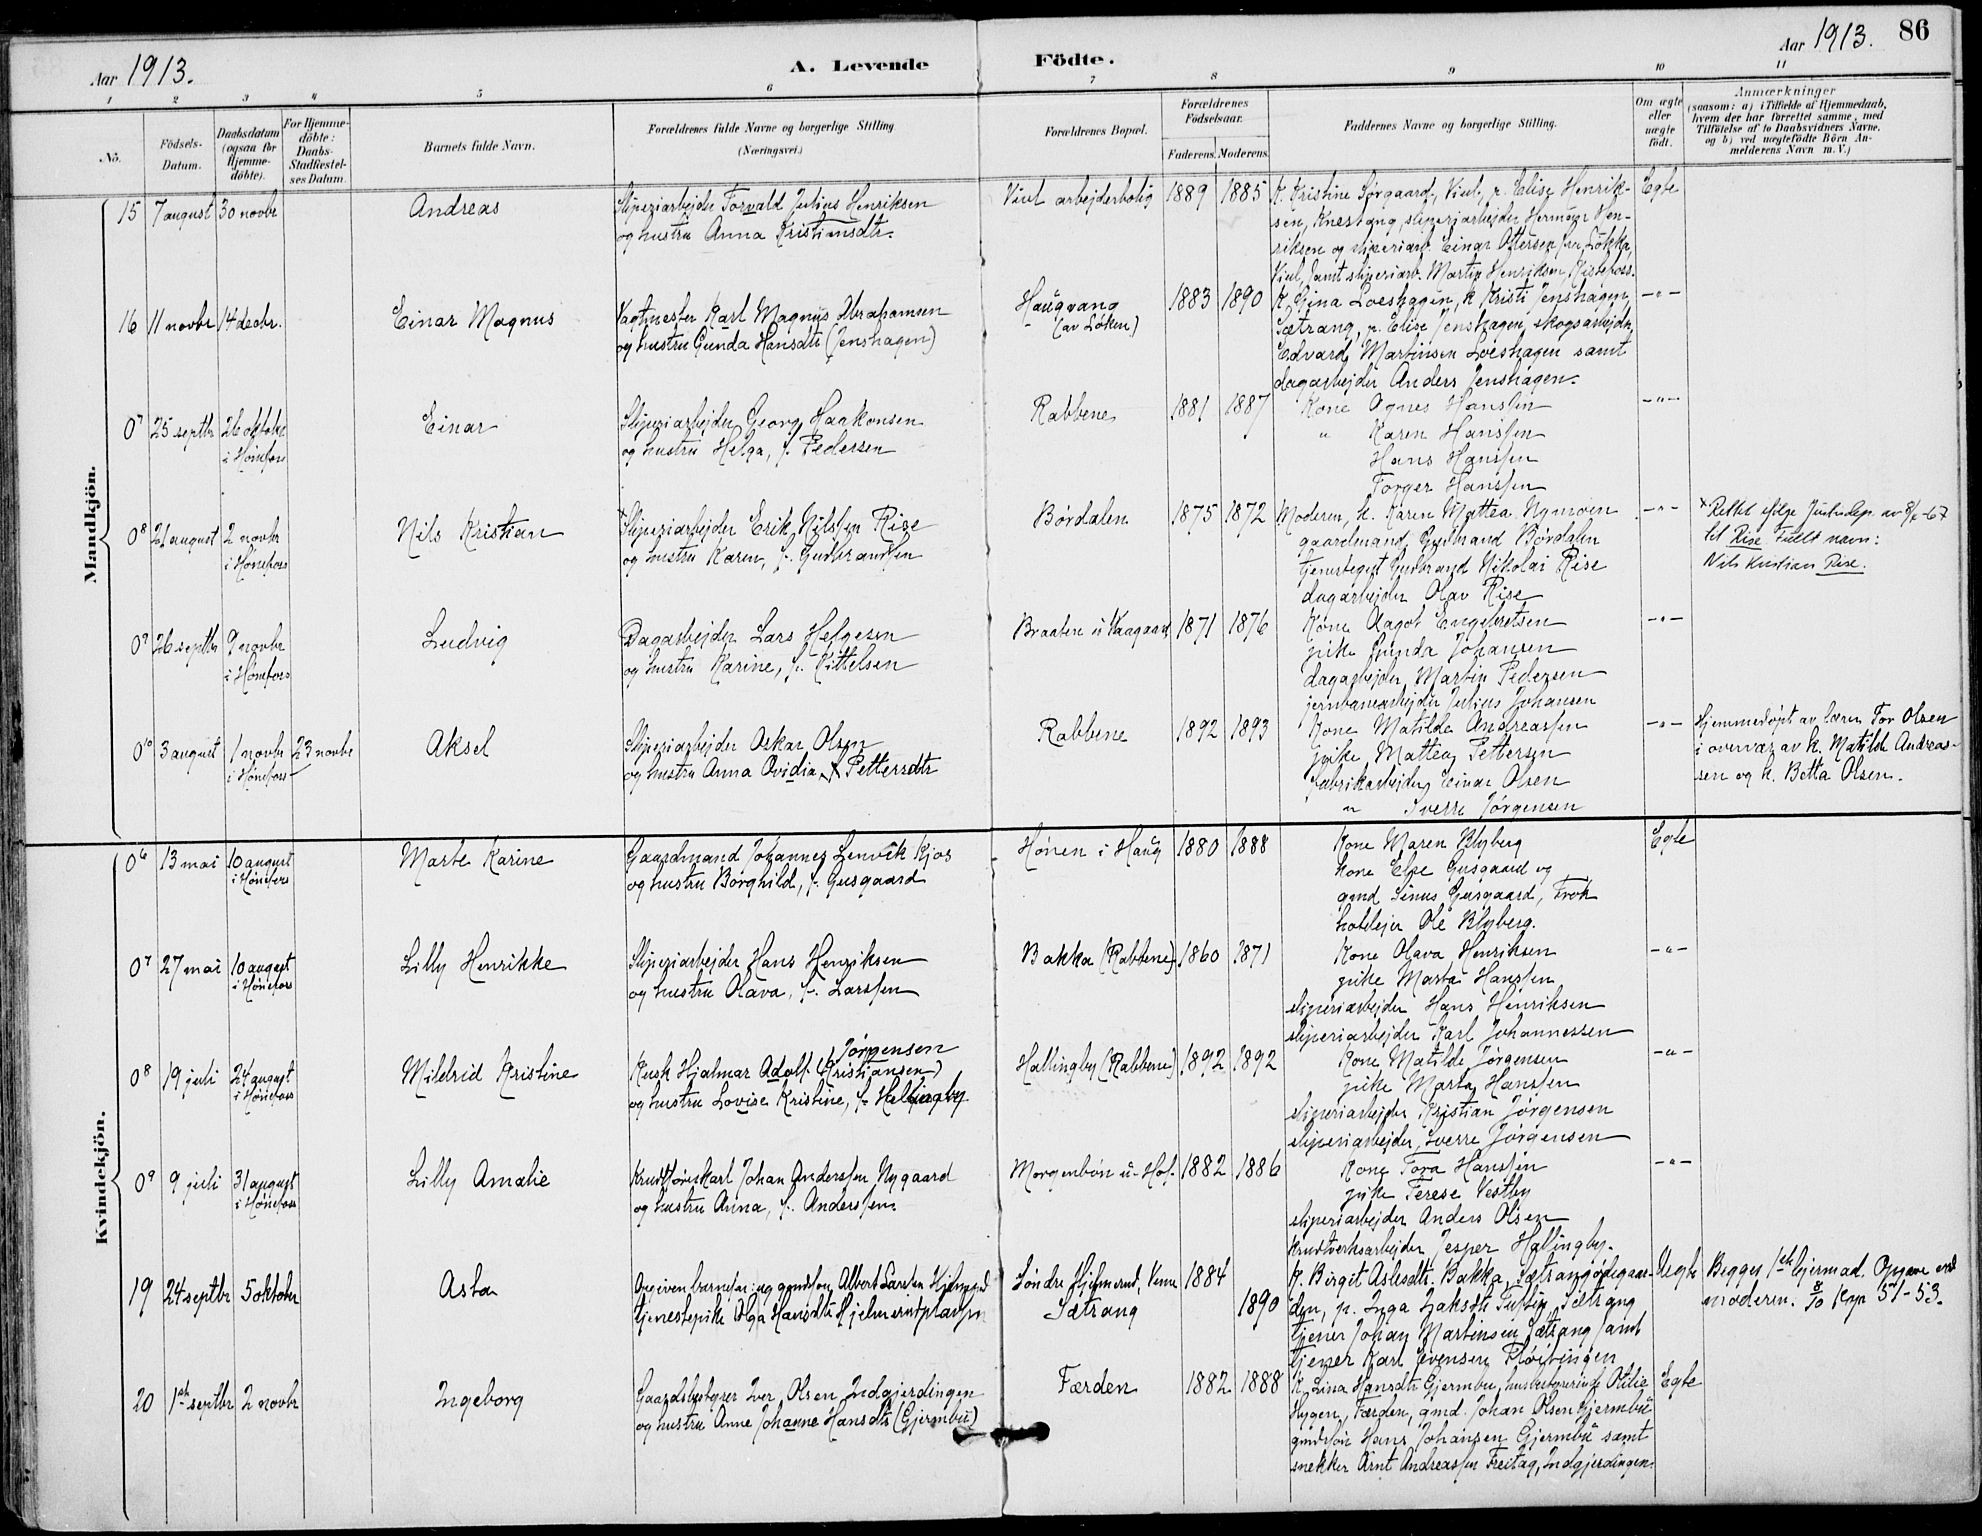 Aar 1913.
A. Levende Födte.
Aar 1913. 86
1 2 3 4 5 6 7 8 9 10 11
No.
Födsels-
Datum.
Daabsdatum
(ogsaa for
Hjemme-
döbte).
For Hjemme-
döbte:
Daabs-
Stadfæstel-
ses Datum.
Barnets fulde Navn.
Forældrenes fulde Navne og borgerlige Stilling
(Næringsvei.)
Forældrenes Bopæl.
Forældrenes
Födselsaar.
Faderens. Moderens.
Faddernes Navne og borgerlige Stilling.
Om ægte
eller
uægte
födt.
Anmærkninger
(saasom: a) i Tilfælde af Hjemmedaab,
hvem der har forrettet samme, med
Tilföielse af to Daabsvidners Navne,
og b) ved uægtefödte Börn An-
melderens Navn m. V.)
Mandkjön.
15 7 august 30 novbr
Andreas
Sliperiarbejder Torvald Julius Henriksen
og hustru Anna Kristiansdtr.
Viul arbejderbolig 1889 1885
K. Kristine Sørgaard, Viul, p. Elise Henrik-
sen, Knestang, sliperiarbejder Herman Hen-
riksen og sliperiarb. Einar Ottersen Løkka,
Viul, samt sliperiarb. Martin Henriksen, Ristefoss.
Egte
16 11 novbr 14 decbr.
Einar Magnus
Vagtmester Karl Magnus Abrahamsen
og hustru Gunda Hansdtr (Jenshagen)
Haugvang
(av Løken)
1883 1890
K. Gina Loeshagen, k. Kristi Jenshagen,
Sætrang, p. Elise Jenshagen, skogsarbejder
Edvard Martinsen Loeshagen samt
dagarbejder Anders Jenshagen.
-"-
07 25 septbr 26 oktober
i Hønefoss
Einar
Sliperiarbejder Georg Haakonsen
og hustru Helga, f. Pedersen
Rabbene 1881 1887
Kone Agnes Hanssen
" Karen Hanssen
Hans Hanssen
Torger Hanssen
-"-
08 21 august 2 novbr
i Hønefoss
Nils Kristian
x Sliperiarbejder Erik Nilssen Rise
og hustru Karen, f. Gudbrandsen
Børdalen 1875 1872
Moderen, k. Karen Mattea Nymoen
gaardmand Gudbrand Børdalen
tjenestegut Gudbrand Nikolai Rise
dagarbejder Olav Rise
-"-
x Rettet ifølge Justisdep. av 8/6-67
til Rise. Fullt navn:
Nils Kristian Rise.
09 26 septbr 9 novbr
i Hønefoss
Ludvig
Dagarbejder Lars Helgesen
og hustru Karine, f. Kittelsen
Braaten u. Vaagaard 1871 1876
Kone Dagot Engebretsen
pike Gunda Johansen
dagarbejder Martin Pedersen
jernbanearbejder Julius Johansen
-"-
010 3 august 1 novbr
i Hønefoss
23 novbr
Aksel
Sliperiarbejder Oskar Olsen
og hustru Anna Ovidia Pettersdtr
Rabbene 1892 1893
Kone Matilde Andreassen
pike Mattea Pettersen
fabrikarbejder Einar Olsen
" Sverre Jørgensen
-"-
Hjemmedøpt av lærer Tor Olsen
i overvær av k. Matilde Andreas-
sen og k. Betta Olsen.
Kvindekjön.
06 13 mai 10 august
i Hønefoss
Marte Karine
Gaardmand Johannes Lenvik Kjos
og hustru Borghild, f. Gusgaard
Hønen i Haug 1880 1888
Kone Maren Blyberg
kone Else Gusgaard og
gmd Sinus Gusgaard,
hotelejer Ole Blyberg.
Egte
07 27 mai 10 august
i Hønefoss
Lilly Henrikke
Sliperiarbejder Hans Henriksen
og hustru Olava, f. Larssen
Bakka (Rabbene) 1860 1871
Kone Olava Henriksen
pike Marta Hanssen
sliperiarbejder Hans Henriksen
sliperiarbejder Karl Johannessen
-"-
08 19 juli 24 august
i Hønefoss
Mildrid Kristine
Jørgensen
Kusk Hjalmar Adolf (Kristiansen)
og hustru Lovise Kristine, f. Hellingby
Hallingby (Rabbene) 1892 1892
Kone Matilde Jørgensen
pike Marta Hanssen
sliperiarbejder Kristian Jørgensen
sliperiarbejder Sverre Jørgensen
-"-
09 9 juli 31 august
i Hønefoss
Lilly Amalie
Johan Anderssen Nygaard
og hustru Anna, f. Anderssen
Morgenbøn u. Hof. 1882 1886
Kone Tora Hanssen
pike Terese Vestby
sliperiarbejder Anders Olsen
krudtverksarbejder Jesper Hallingby.
-"-
19 24 septbr 5 oktober
Asta
Opgiven barnefar: ug gmdsøn Albert Larsen Hjelmerud
tjenestepike Olga Hansdtr
Søndre Hjelmerud,
Sætrang
1884
1890
K. Birgit Aslesdtr. Bakka, Sætrang,
p. Inga Tuftin, Sætrang
tjener Johan Martinsen Sætrang samt
tjener Karl Evensen Fløitingen
Uegte
Begges 1ste Opgave ved
moderen. 8/10 Kap 51-53.
20 1ste septbr 2 novbr
Ingeborg
Gaardsbestyrer Iver Olsen Indgjerdingen
og hustru Anne Johanne Hansdtr (Gjermbu)
Færden 1882 1888
K. Lina Hansdtr Gjermbu, husbestyrerinde Otilie
Hygen, Færden, gmd. Johan Olsen Gjermbu
gmdsøn Hans Johansen Gjermbu samt
snekker Arnt Andreassen Freitag, Indgjerdingen.
Egte